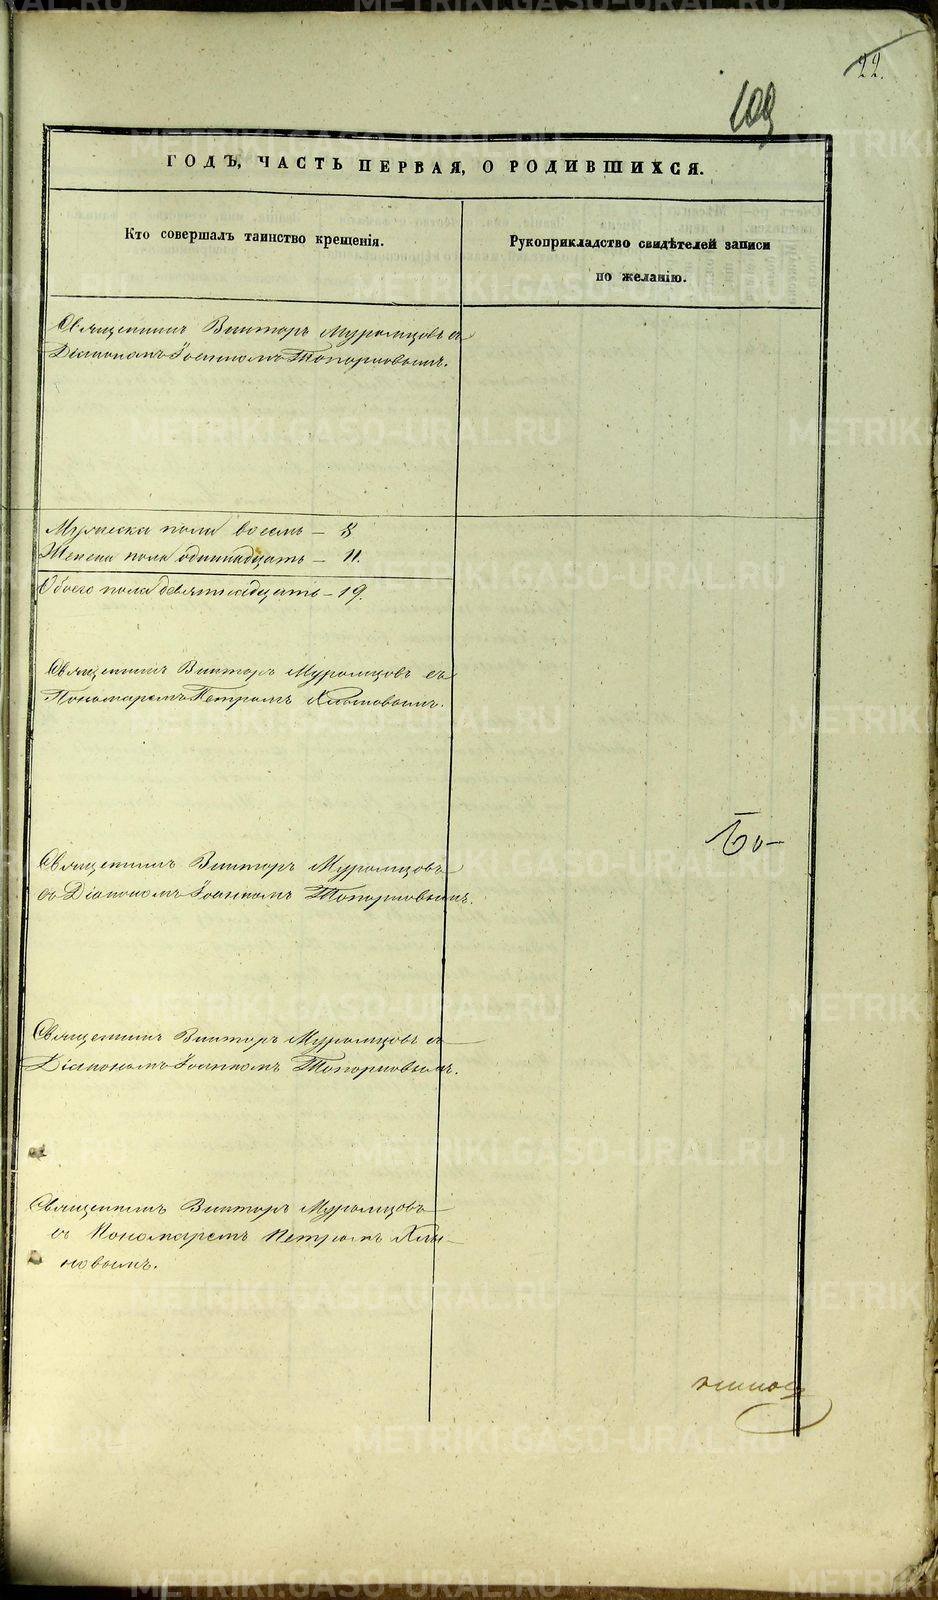 22.
109
ГОДЪ, ЧАСТЬ ПЕРВАЯ, О РОДИВШИХСЯ.
Кто совершалъ таинство крещенія.
Рукоприкладство свидѣтелей записи
по желанію.
Священникъ Викторъ Муромцовъ съ
Діакономъ Іоанномъ Топорковымъ.
Мужеска пола восемь – 8
Женска пола одиннадцать – 11.
Обоего пола девятнадцать – 19.
Священникъ Викторъ Муромцовъ съ
Пономаремъ Петромъ Хлыновымъ.
Священникъ Викторъ Муромцовъ
съ Діакономъ Іоанномъ Топорковымъ.
Священникъ Викторъ Муромцовъ съ
Діакономъ Іоанномъ Топорковымъ.
Священникъ Викторъ Муромцовъ
съ Пономаремъ Петромъ Хлы-
новымъ.
METRIKI.GASO-URAL.RU